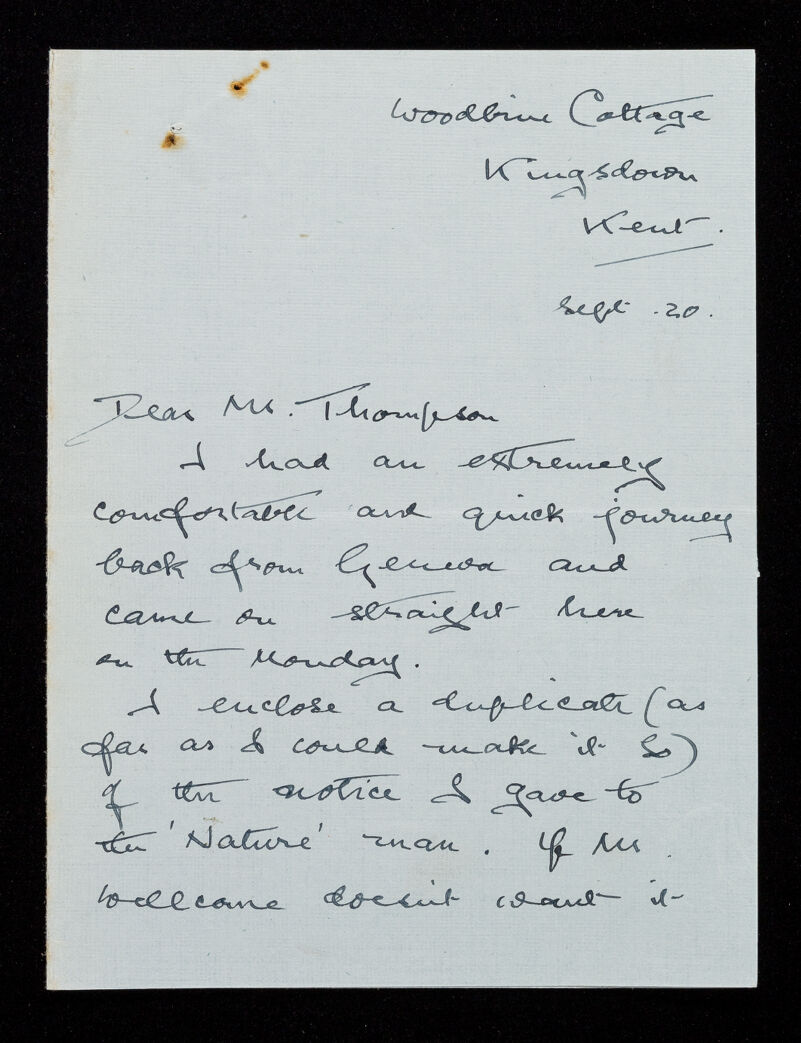 Woodbine Cottage
Kingsdown
Kent.
Sept. 20.
Dear Mr. Thompson
I had an extremely
comfortable and quick journey
back from Geneva and
came on straight here
on the Monday.
I enclose a duplicate (as
far as I could make it so)
of the notice I gave to
the 'Nature' man. If Mr.
Wellcome doesn't want it